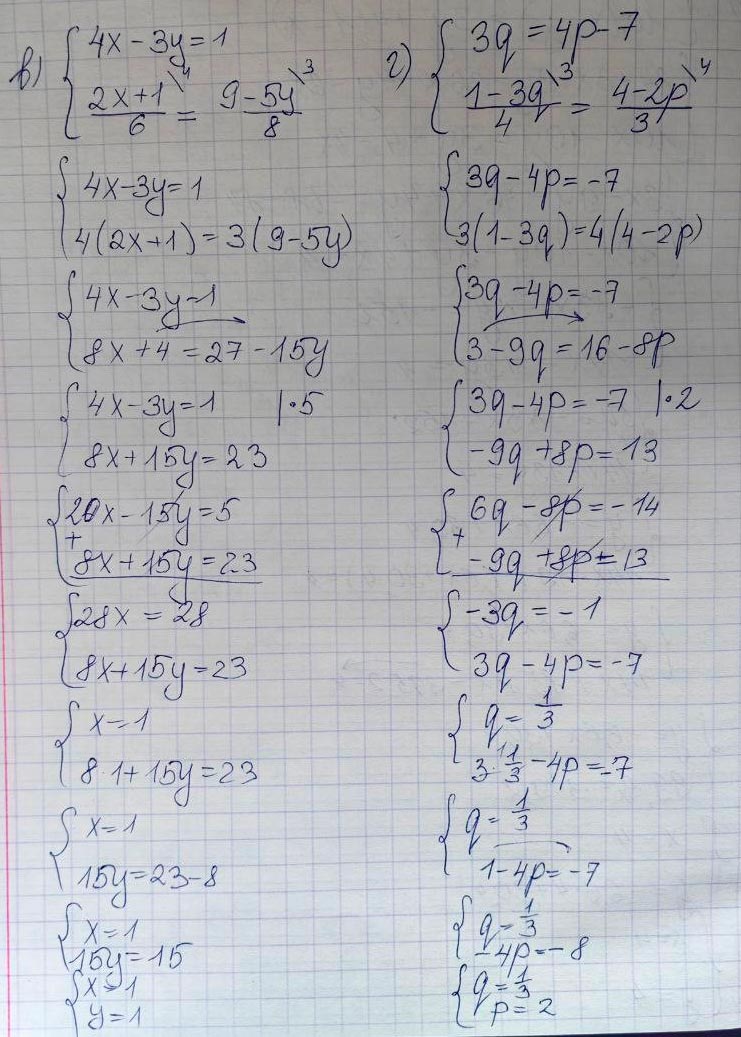 в) { 4x - 3y = 1
(2x+1)\4 / 6 = (9-5y)\3 / 8
{ 4x-3y=1
4(2x+1)=3(9-5y)
{ 4x-3y-1
8x+4=27-15y
{ 4x-3y=1 |·5
8x+15y=23
{ 20x-15y=5
+ 8x+15y=23
{ 28x = 28
8x+15y=23
{ x=1
8·1+15y=23
{ x=1
15y=23-8
{ x=1
15y=15
{ x=1
y=1
г) { 3q = 4p-7
(1-3q)\3 / 4 = (4-2p)\4 / 3
{ 3q-4p=-7
3(1-3q)=4(4-2p)
{ 3q-4p=-7
3-9q=16-8p
{ 3q-4p=-7 |·2
-9q+8p=13
{ 6q-8p=-14
+ -9q+8p=13
{ -3q=-1
3q-4p=-7
{ q=1/3
3·1/3-4p=-7
{ q=1/3
1-4p=-7
{ q=1/3
-4p=-8
{ q=1/3
p=2